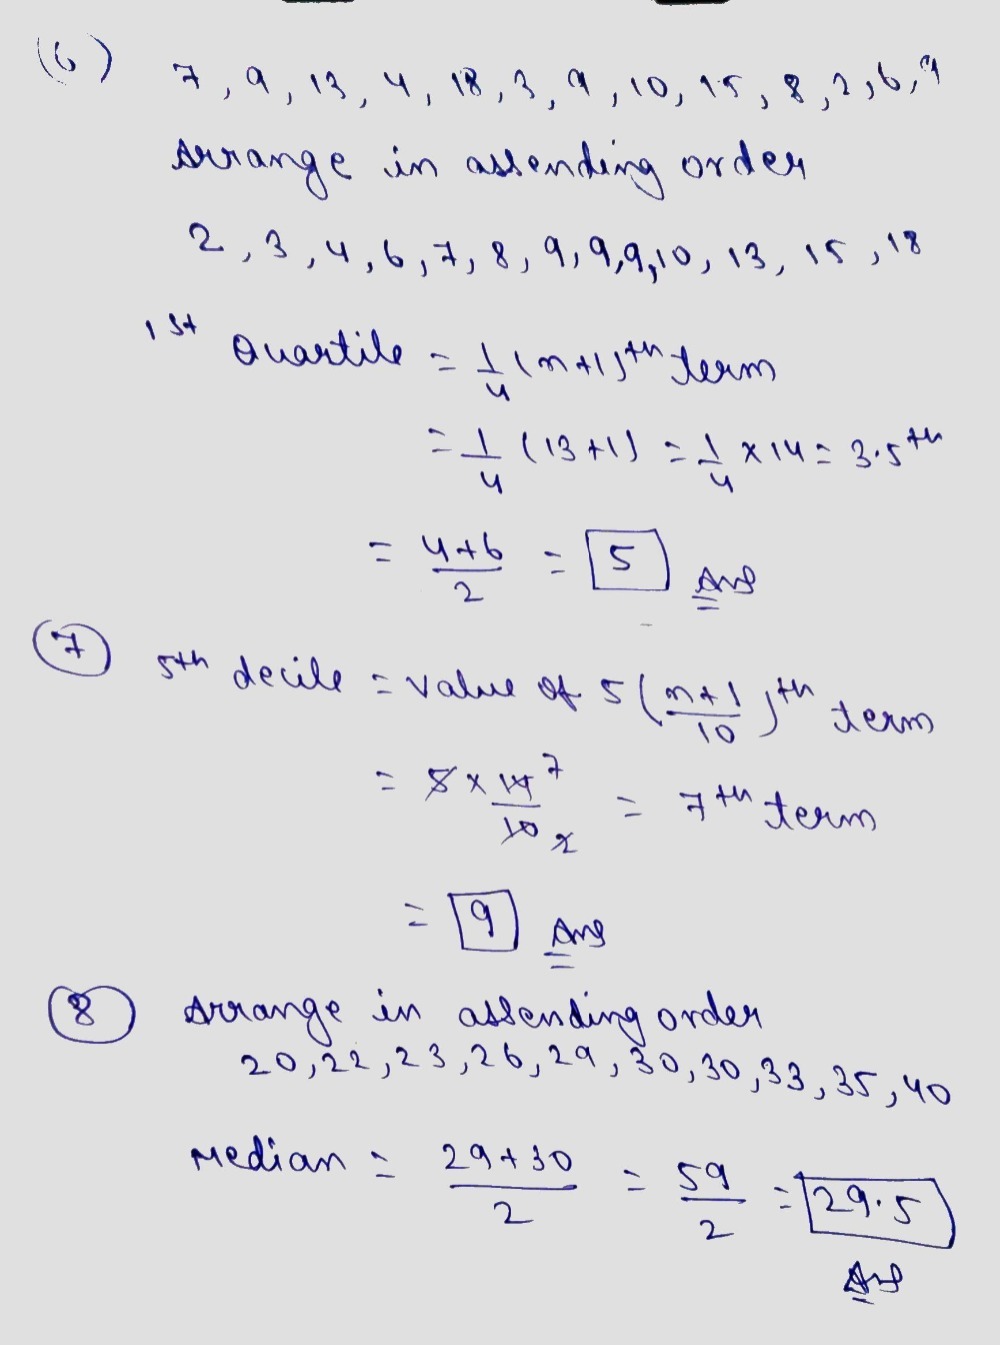 (6) 7, 9, 13, 4, 18, 3, 9, 10, 15, 8, 2, 6, 9
Arrange in assending order
2, 3, 4, 6, 7, 8, 9, 9, 9, 10, 13, 15, 18
1st Quartile = 1/4 (n+1)th term
= 1/4 (13+1) = 1/4 × 14 = 3.5th
= 4+6/2 = 5 Ans
(7) 5th decile = value of 5(n+1/10)th term
= 5 × 14/10 7 2 = 7th term
= 9 Ans
(8) Arrange in assending order
20, 22, 23, 26, 29, 30, 30, 33, 35, 40
Median = 29+30/2 = 59/2 = 29.5
Ans